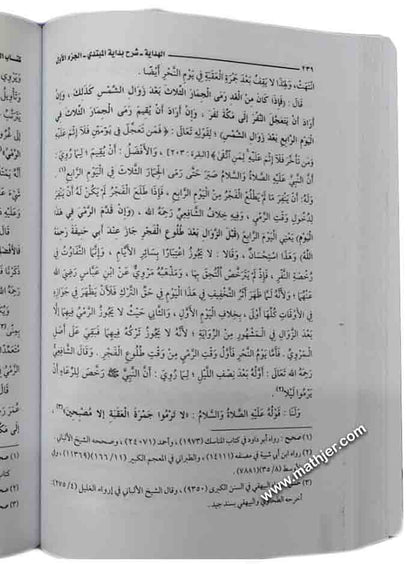 ٢٣٩
الهداية - شرح بداية المبتدي - الجزء الأول
انْتَهَتْ، وَلِهَذَا لَا يَقِفُ بَعْدَ جَمْرَةِ الْعَقَبَةِ فِي يَوْمِ النَّحْرِ أَيْضًا.
قَالَ: (فَإِذَا كَانَ مِنْ الْغَدِ رَمَى الْجِمَارَ الثَّلَاثَ بَعْدَ زَوَالِ الشَّمْسِ كَذَلِكَ، وَإِنْ
أَرَادَ أَنْ يَتَعَجَّلَ النَّفْرَ إلَى مَكَّةَ نَفَرَ، وَإِنْ أَرَادَ أَنْ يُقِيمَ رَمَى الْجِمَارَ الثَّلَاثَ فِي
الْيَوْمِ الرَّابِعِ بَعْدَ زَوَالِ الشَّمْسِ) لِقَوْلِهِ تَعَالَى: ﴿فَمَن تَعَجَّلَ فِي يَوْمَيْنِ فَلَا إِثْمَ عَلَيْهِ
وَمَن تَأَخَّرَ فَلَا إِثْمَ عَلَيْهِ لِمَنِ اتَّقَى﴾ [البقرة: ٢٠٣]، وَالْأَفْضَلُ: أَنْ يُقِيمَ؛ لِمَا رُوِيَ:
أَنَّ النَّبِيَّ عَلَيْهِ الصَّلَاةُ وَالسَّلَامُ صَبَرَ حَتَّى رَمَى الْجِمَارَ الثَّلَاثَ فِي الْيَوْمِ الرَّابِعِ(١).
وَلَهُ: أَنْ يَنْفِرَ مَا لَمْ يَطْلُعْ الْفَجْرُ مِنْ الْيَوْمِ الرَّابِعِ، فَإِذَا طَلَعَ الْفَجْرُ لَمْ يَكُنْ لَهُ أَنْ يَنْفِرَ
لِدُخُولِ وَقْتِ الرَّمْيِ، وَفِيهِ خِلَافُ الشَّافِعِيِّ رَحِمَهُ اللهُ، (وَإِنْ قَدَّمَ الرَّمْيَ فِي هَذَا
الْيَوْمِ) يَعْنِي الْيَوْمَ الرَّابِعَ (قَبْلَ الزَّوَالِ بَعْدَ طُلُوعِ الْفَجْرِ جَازَ عِنْدَ أَبِي حَنِيفَةَ رَحِمَهُ
اللهُ) وَهَذَا اسْتِحْسَانٌ، وَقَالَا: لَا يَجُوزُ اعْتِبَارًا بِسَائِرِ الْأَيَّامِ، وَإِنَّمَا التَّفَاوُتُ فِي
رُخْصَةِ النَّفْرِ، فَإِذْ لَمْ يَتَرَخَّصْ الْتَحَقَ بِهَا، وَمَذْهَبُهُ مَرْوِيٌّ عَنْ ابْنِ عَبَّاسٍ رَضِيَ اللهُ
عَنْهُمَا، وَلِأَنَّهُ لَمَّا ظَهَرَ أَثَرُ التَّخْفِيفِ فِي هَذَا الْيَوْمِ فِي حَقِّ التَّرْكِ فَلَأَنْ يَظْهَرَ فِي جَوَازِهِ
فِي الْأَوْقَاتِ كُلِّهَا أَوْلَى، بِخِلَافِ الْيَوْمِ الْأَوَّلِ، وَالثَّانِي حَيْثُ لَا يَجُوزُ الرَّمْيُ إلَّا
بَعْدَ الزَّوَالِ فِي الْمَشْهُورِ مِنْ الرِّوَايَةِ؛ لِأَنَّهُ لَا يَجُوزُ تَرْكُهُ فِيهِمَا فَبَقِيَ عَلَى أَصْلِ
الْمَرْوِيِّ. فَأَمَّا يَوْمُ النَّحْرِ فَأَوَّلُ وَقْتِ الرَّمْيِ مِنْ وَقْتِ طُلُوعِ الْفَجْرِ. وَقَالَ الشَّافِعِيُّ
رَحِمَهُ اللهُ تَعَالَى: أَوَّلُهُ بَعْدَ نِصْفِ اللَّيْلِ؛ لِمَا رُوِيَ: أَنَّ النَّبِيَّ ﷺ رَخَّصَ لِلرِّعَاءِ أَنْ
يَرْمُوا لَيْلًا(٢).
وَلَنَا: قَوْلُهُ عَلَيْهِ الصَّلَاةُ وَالسَّلَامُ: لَا تَرْمُوا جَمْرَةَ الْعَقَبَةِ إلَّا مُصْبِحِينَ(٣)،
(١) صحيح: رواه أبو داود في كتاب المناسك (١٩٧٣)، وأحمد (٢٤٠٧١)، وصححه الشيخ الألباني.
(٢) رواه ابن أبي شيبة في مصنفه (١٤١١١)، والطبراني في المعجم الكبير (١١/١٦٦) (١١٣٦٩)، وفي
(٨/٣٥) (٧٨٨١).
والبيهقي في السنن الكبرى (٩٣٥٠)، وقال الشيخ الألباني في إرواء الغليل (٤/٢٧٥):
أخرجه الطحاوي والبيهقي بسند جيد.
www.mathjer.com